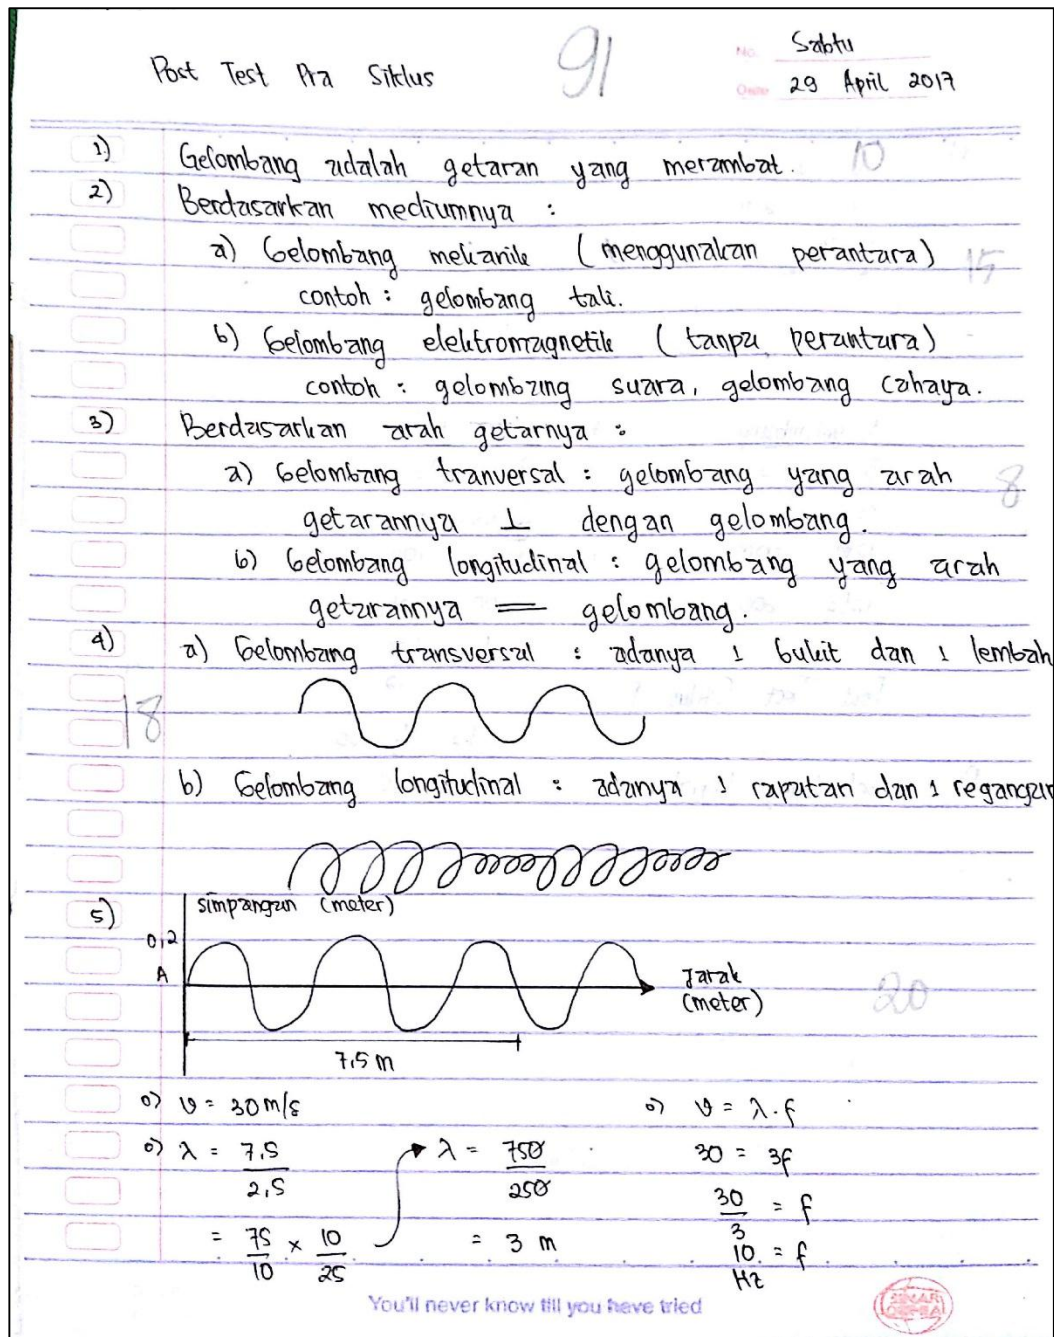 Post Test Pra Siklus
91
No. Sabtu
Date 29 April 2017
1) Gelombang adalah getaran yang merambat. 10
2) Berdasarkan mediumnya :
a) Gelombang mekanik (menggunakan perantara) 15
contoh : gelombang tali.
b) Gelombang elektromagnetik (tanpa perantara)
contoh : gelombang suara, gelombang cahaya.
3) Berdasarkan arah getarnya :
a) Gelombang tranversal : gelombang yang arah 8
getarannya ⊥ dengan gelombang.
b) Gelombang longitudinal : gelombang yang arah
getarannya = gelombang.
4) a) Gelombang transversal : adanya 1 bukit dan 1 lembah
18
b) Gelombang longitudinal : adanya 1 rapatan dan 1 regangan
5) simpangan (meter)
0,2
A
Jarak
(meter)
20
7,5 m
o) v = 30 m/s
o) λ = 7,5 / 2,5
= 75/10 × 10/25
λ = 750/250
= 3 m
o) v = λ . f
30 = 3f
30/3 = f
10 = f
Hz
You'll never know till you have tried
SINAR